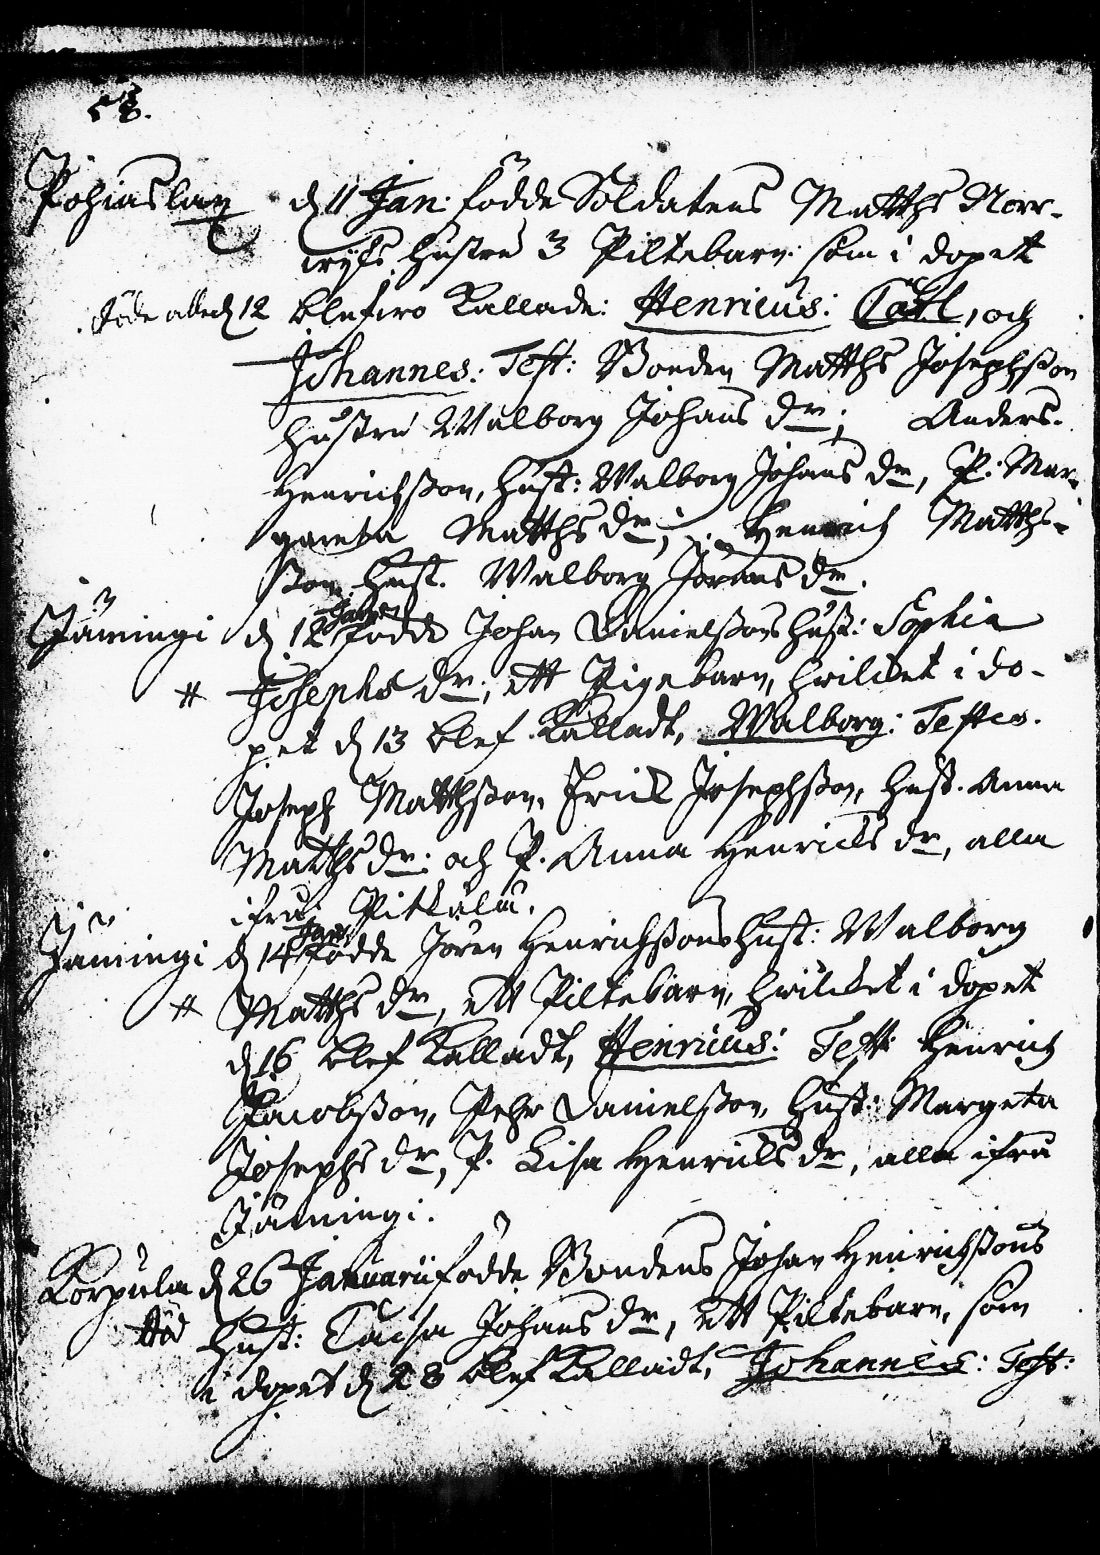 58.
Pohiaslax d 11 Jan: födde Soldatens Matths Norr-
hustru 3 Piltebarn: som i dopet
döde alle d 12 blefwo kallade: Henricus: Carl, och
Johannes: Test: Bonden Matths Josephsson
hustru Walborg Johans dr; Anders
Henrichsson, hust: Walborg Johans dr, P. Mar-
gareta Matths dr; Henrich Matths-
son, hust. Walborg Jörans dr.
Jämingi d 12 Janr födde Johan Danielssons hust: Sophia
# Josephs dr; ett Pigebarn, hwilcket i do-
pet d 13 blef kalladt, Walborg: Testes.
Joseph Matthsson, Erick Josephsson, hust. Anna
Matths dr: och P. Anna Henricks dr, alla
ifrå Pitkälä.
Jämingi d 14 Janr födde Jören Henrichssons hust: Walborg
# Matths dr, ett Piltebarn, hwilcket i dopet
d 16 blef kalladt, Henricus: Test: Henrich
Jacobsson, Pehr Danielsson, hust: Margeta
Josephs dr, P. Lisa Henricks dr, alla ifrå
Jämingi.
Korpula d 26 Januarii födde Bondens Johan Henrichssons
död hust: Caisa Johans dr, ett Piltebarn, som
i dopet d 28 blef kalladt, Johannes: Test: